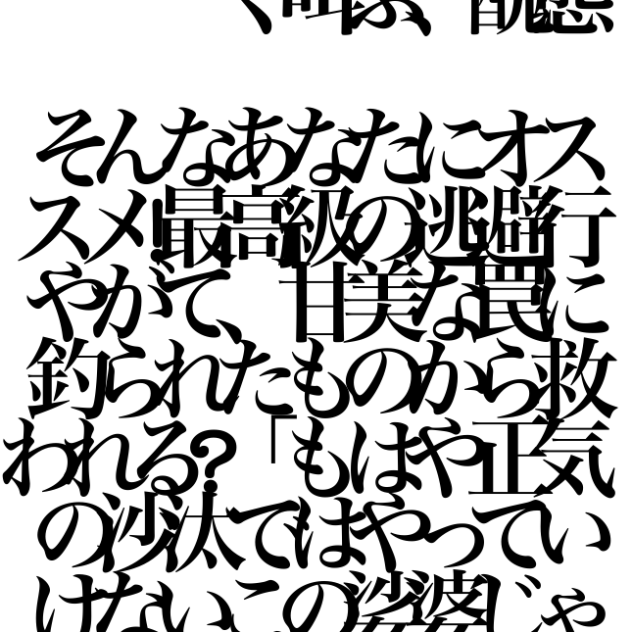 く叫ぶ、醜態
そんなあなたにオス
スメ!最高級の逃避行
やがて、甘美な罠に
釣られたものから救
われる?「もはや正気
の沙汰ではやってい
けないこの娑婆じゃ